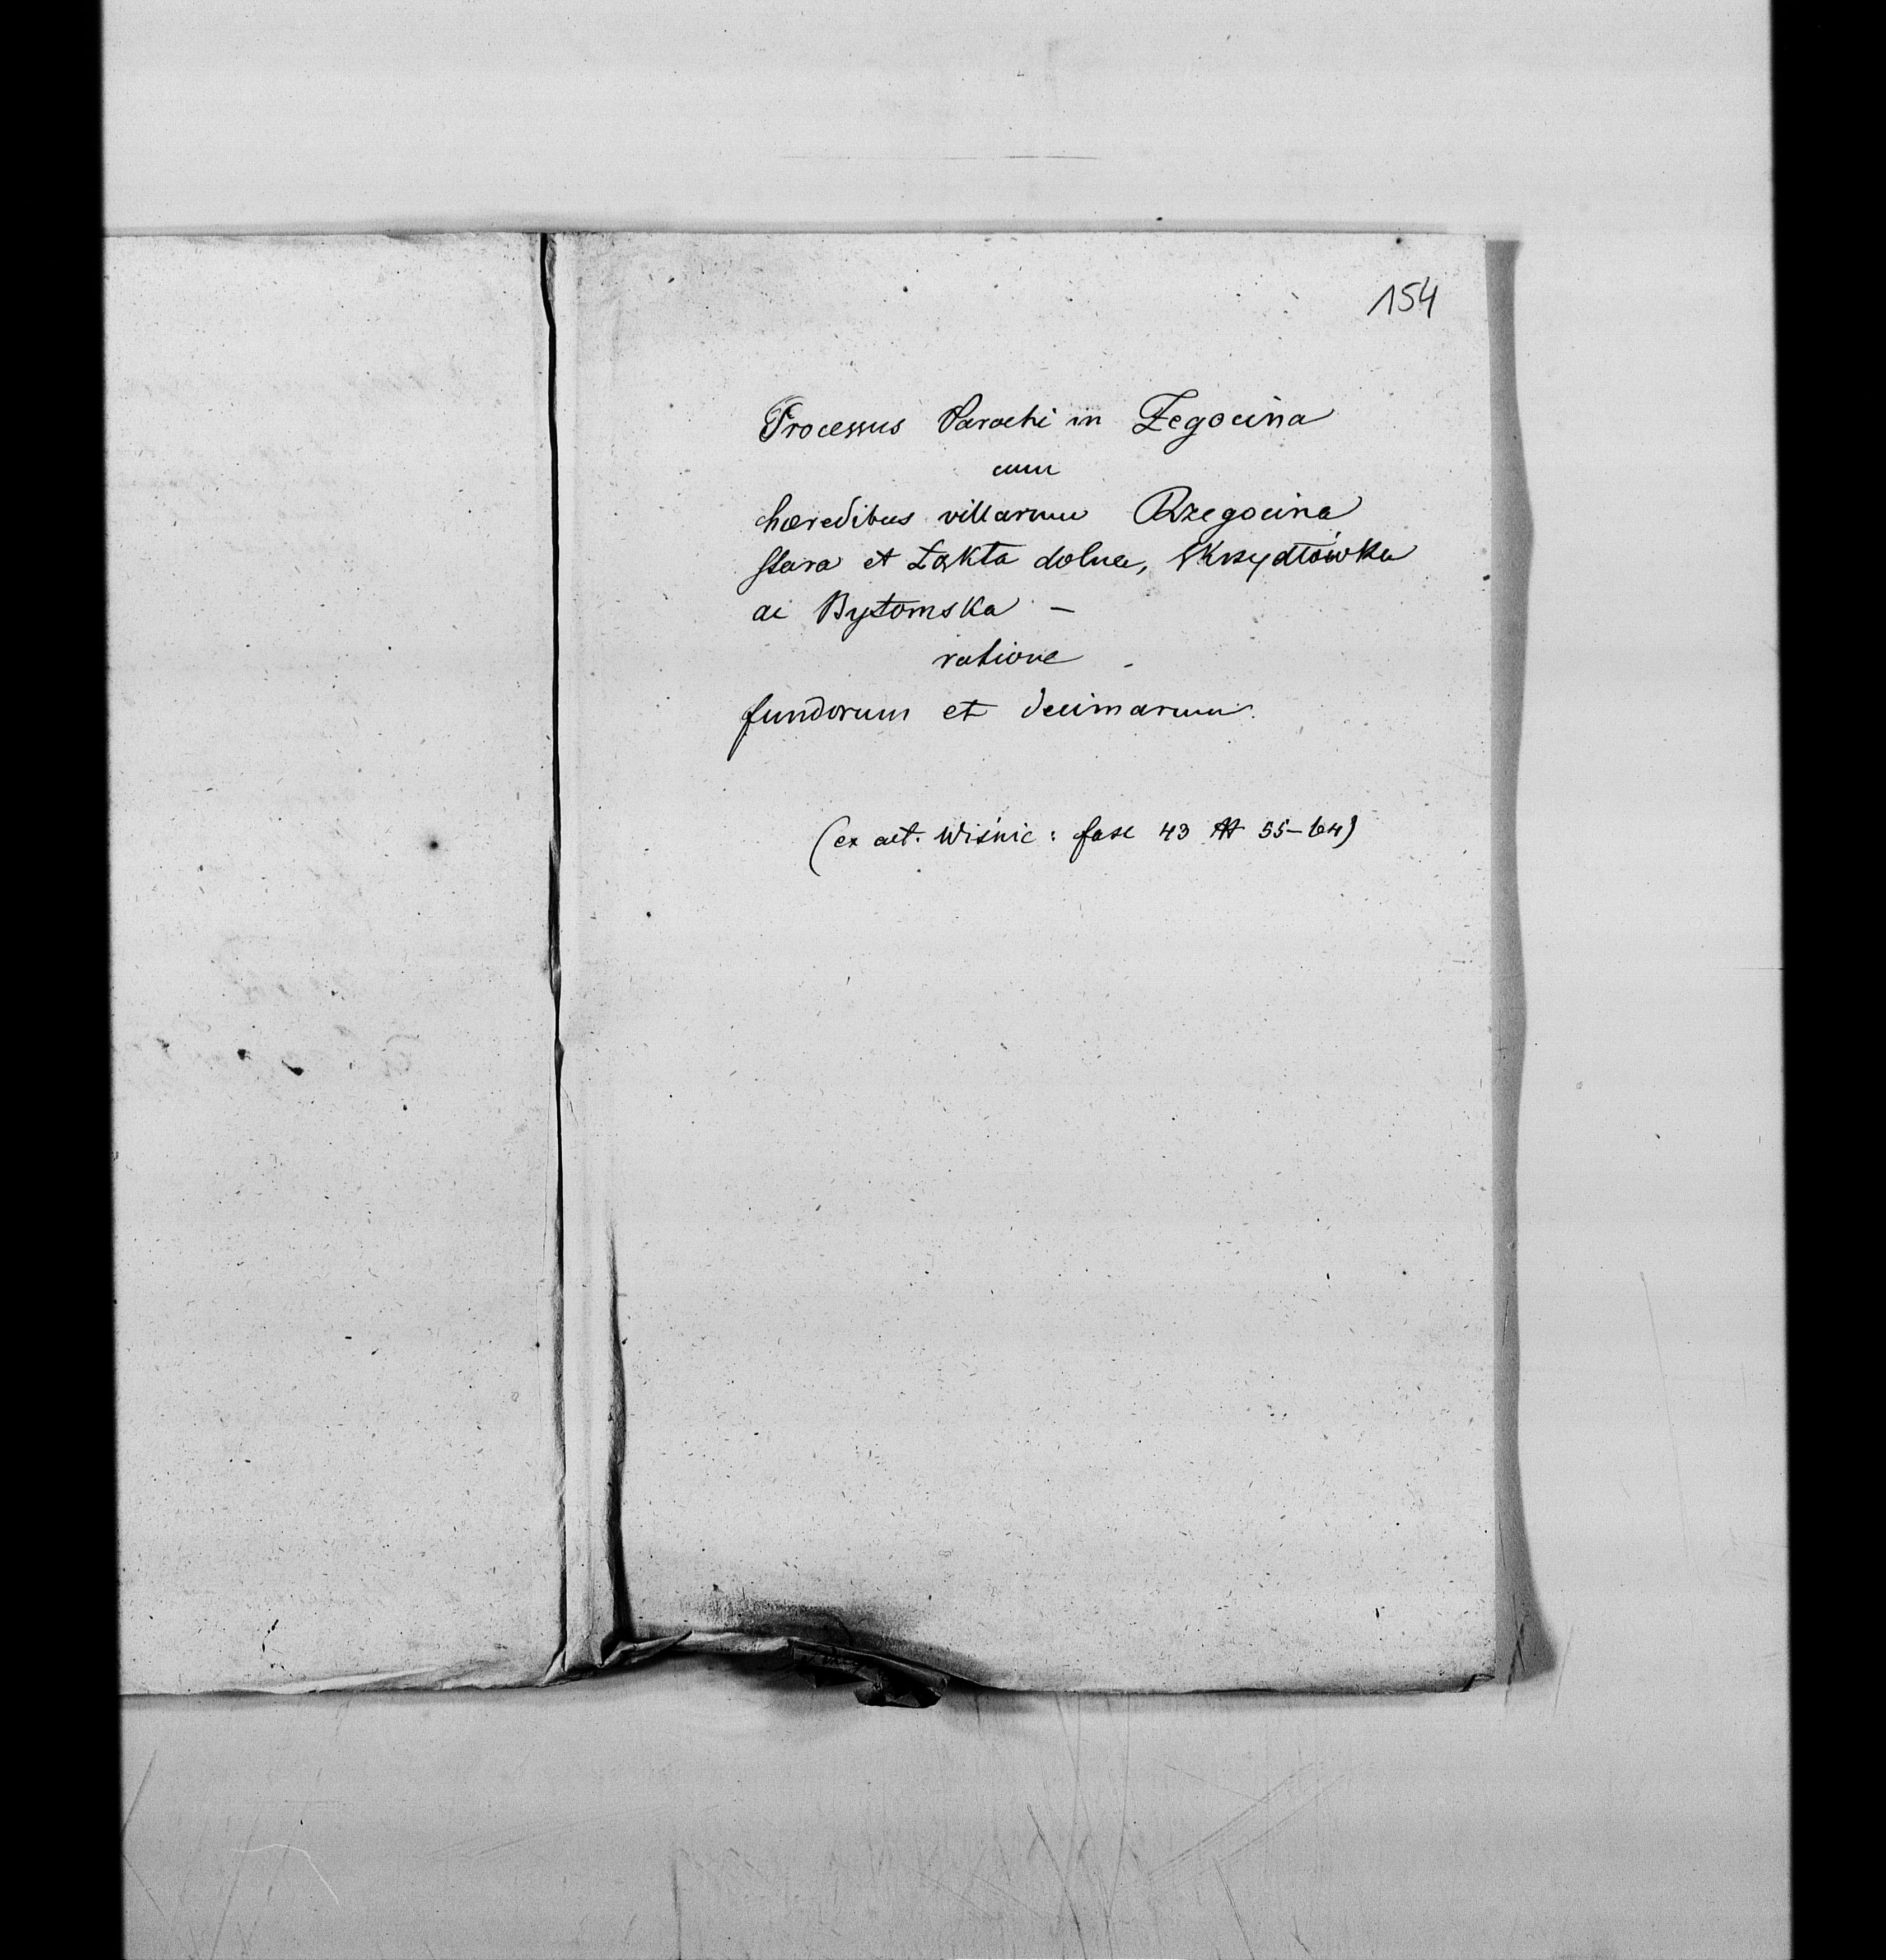 154
Processus Parochi in Żegocina
cum
hæredibus villarum Rzegocina
stara et Łąkta dolna, Skrzydłówka
ac Bytomska –
ratione
fundorum et decimarum.
(ex act. Wiśnic: fasc 43 № 55–64)